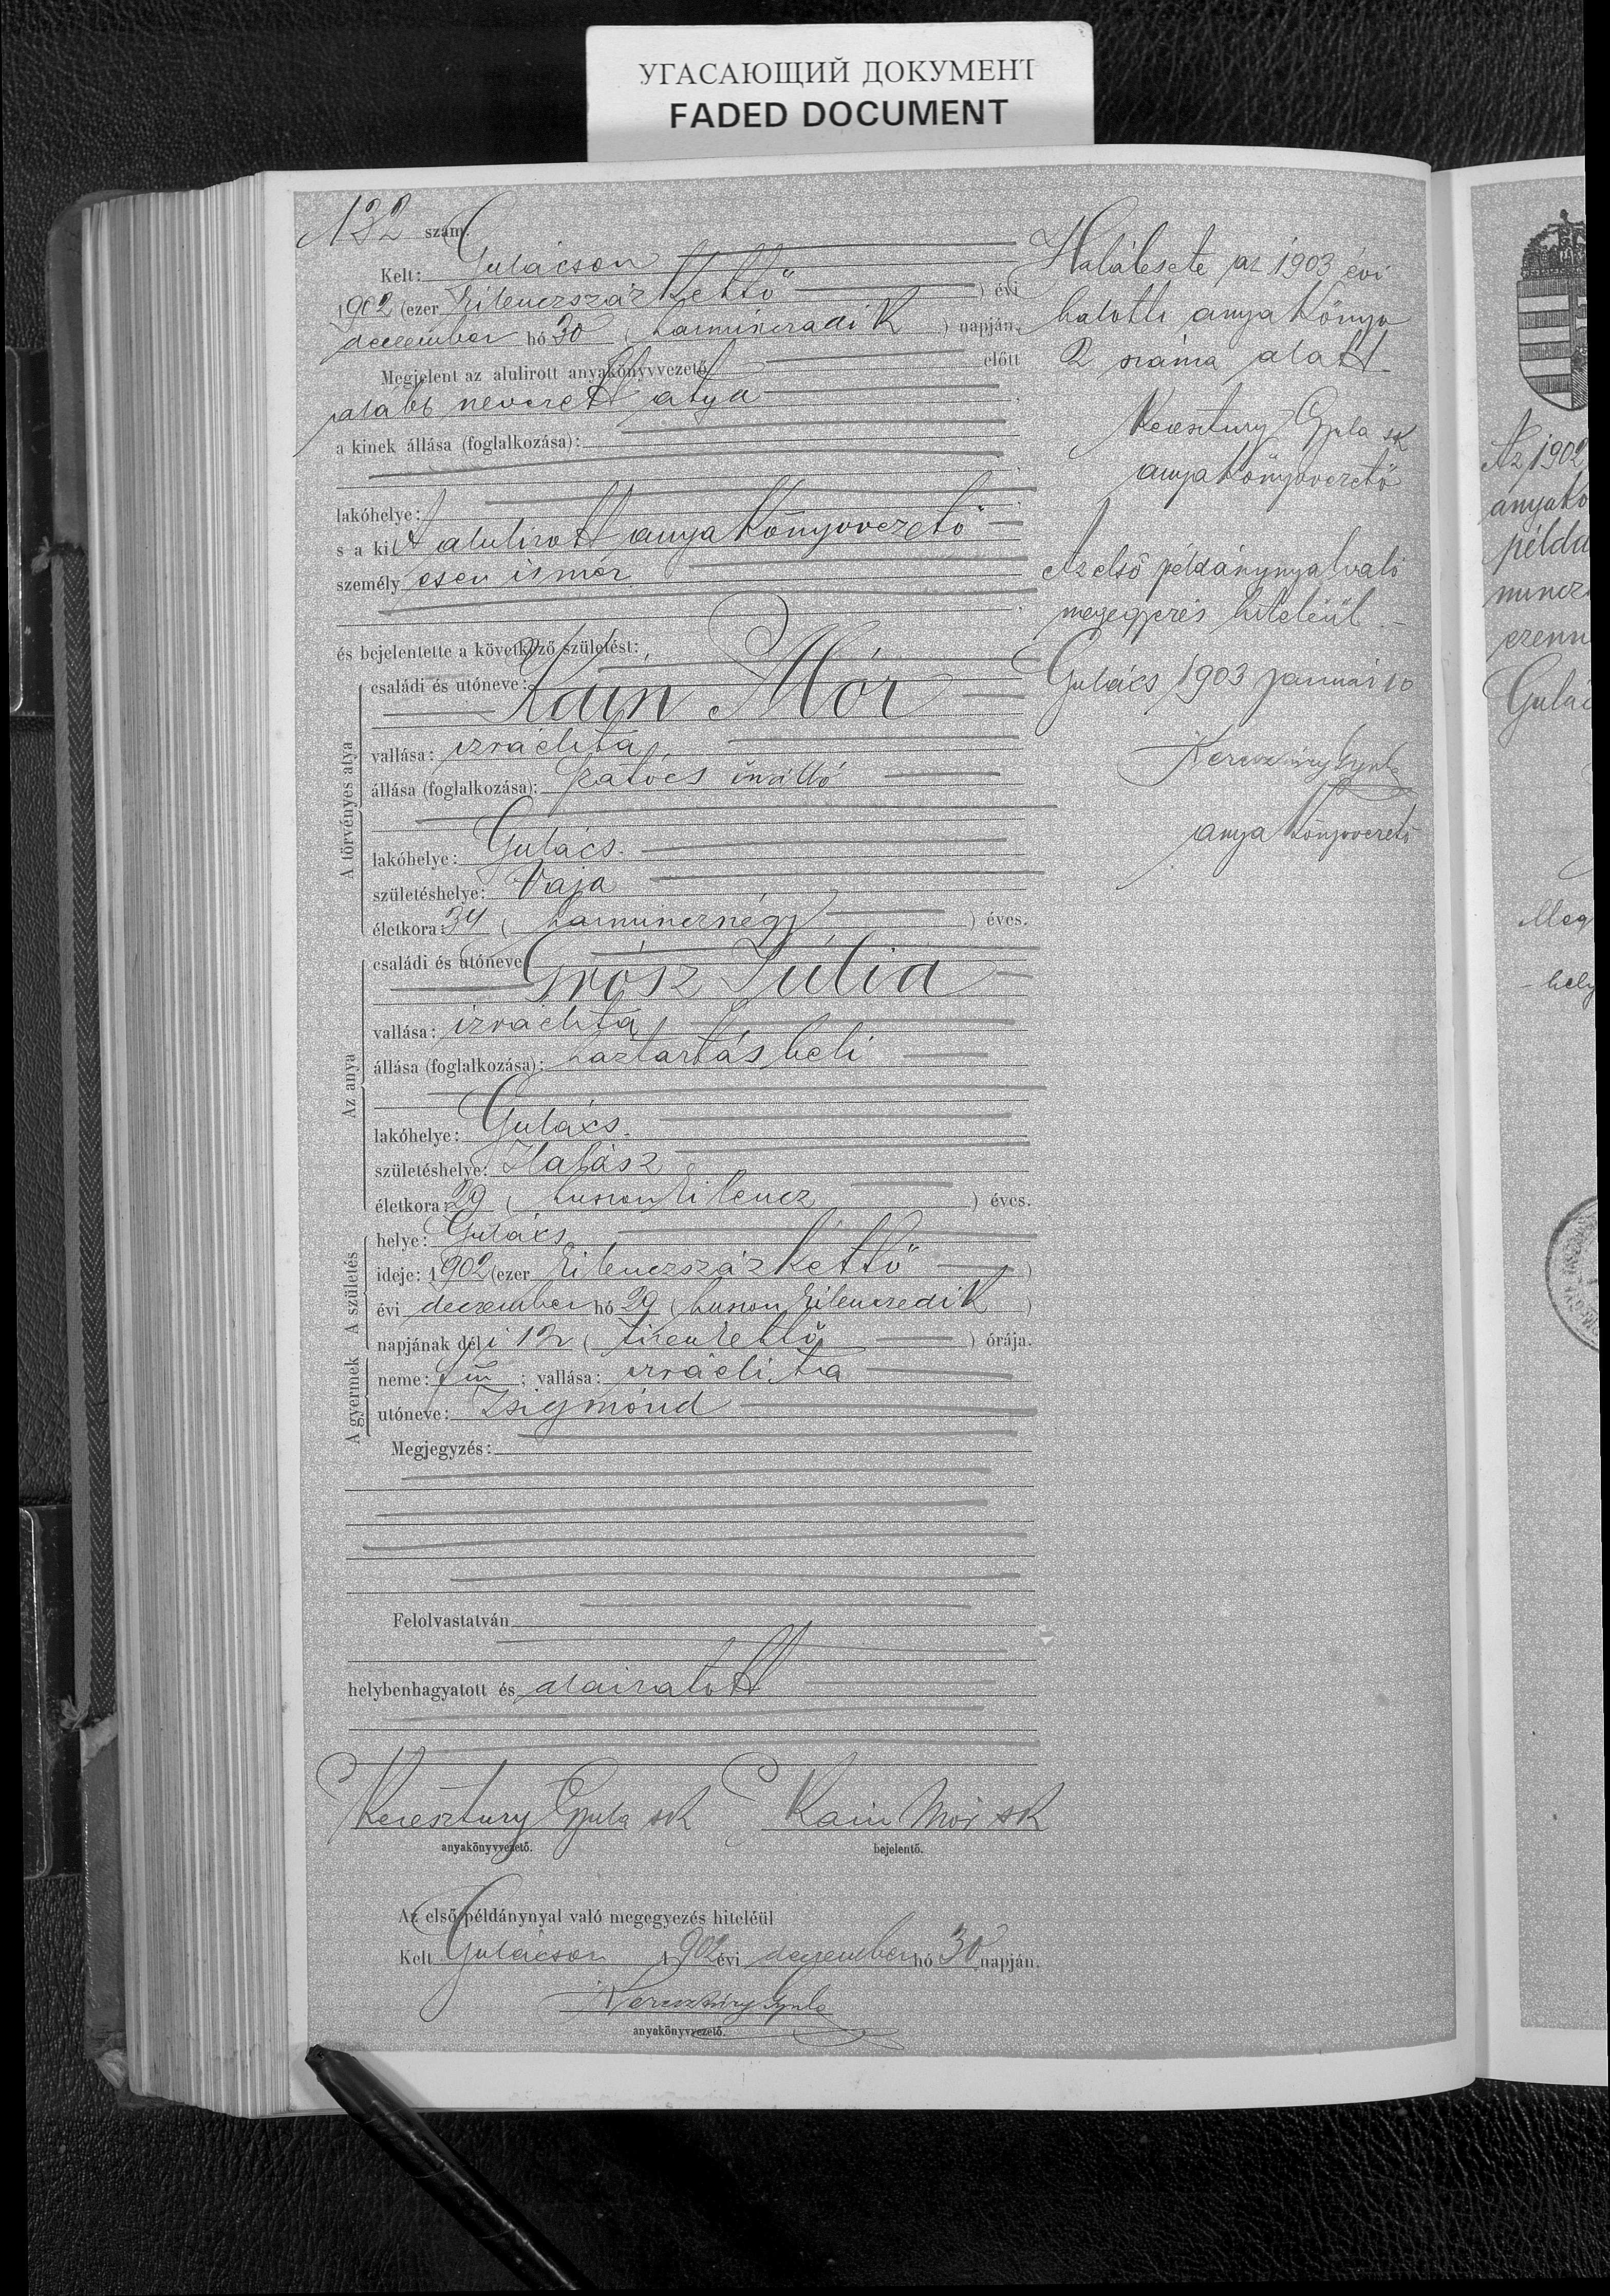 УГАСАЮЩИЙ ДОКУМЕНТ
FADED DOCUMENT
132 szám.
Kelt: Gulácson
1902 (ezer kilenczszázkettő) évi
deczember hó 30 (harminczadik) napján,
Megjelent az alulirott anyakönyvvezető előtt
alább nevezett atya
a kinek állása (foglalkozása):
lakóhelye:
s a kit alulirott anyakönyvvezető
személyesen ismer
és bejelentette a következő születést:
A törvényes atya
családi és utóneve: Kain Mór
vallása: izraelita
állása (foglalkozása): szatócs önálló
lakóhelye: Gulács.
születéshelye: Vaja
életkora: 34 (harmincznégy) éves.
Az anya
családi és utóneve: Grósz Júlia
vallása: izraelita
állása (foglalkozása): háztartásbeli
lakóhelye: Gulács.
születéshelye: Halász
életkora: 29 (huszonkilencz) éves.
A születés
helye: Gulács
ideje: 1902 (ezer kilenczszázkettő)
évi deczember hó 29 (huszonkilenczedik)
napjának déli 12 (tizenkettő) órája.
A gyermek
neme: fiu; vallása: izraelita
utóneve: Zsigmond
Megjegyzés:
Felolvastatván
helybenhagyatott és aláiratott
Keresztury Gyula sk Kain Mór sk
anyakönyvvezető. bejelentő.
Az első példánynyal való megegyezés hiteléül
Kelt Gulácson 1902 évi deczember hó 30 napján.
Keresztury Gyula
anyakönyvvezető.
Halálesete az 1903 évi
halotti anyakönyv
2 száma alatt.
Keresztury Gyula sk
anyakönyvvezető
Az első példánynyal való
megegyezés hiteléül.
Gulács 1903 január 10
Keresztury Gyula
anyakönyvvezető
Az 1902
anyakö
példá
Gulác
Meg
hely